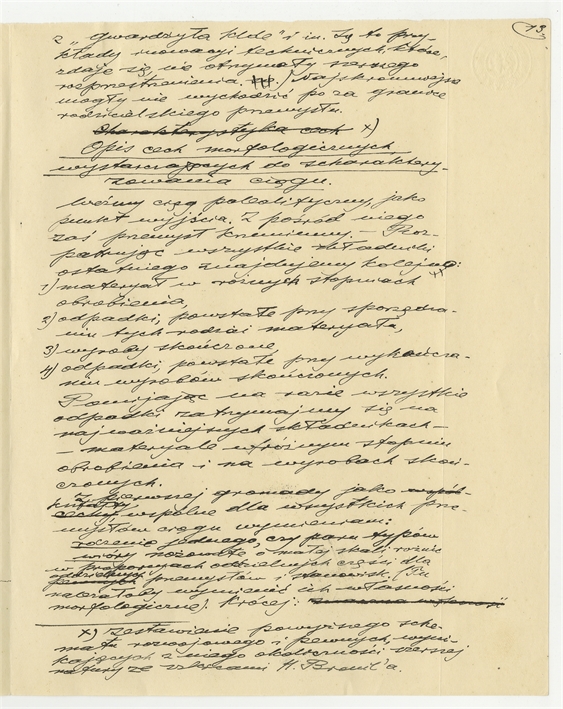 13.
z „gwardzyla klde" i in. Są to przy-
kłady inowacyj technicznych, które,
zdaje się, nie otrzymały szerszego
rozprzestrzenienia. Najskromniejsze
mogły nie wychodzić poza granice
rodzicielskiego przemysłu.
Charakterystyka cech x)
Opis cech morfologicznych
wystarczających do scharaktery-
zowania ciągu.
Weźmy ciąg paleolityczny, jako
punkt wyjścia. Z pośród niego
zaś przemysł krzemienny. – Roz-
patrując wszystkie składniki
ostatniego znajdujemy kolejno:
1) materjał w różnych stopniach
obrobienia,
2) odpadki, powstałe przy sporządza-
niu tych rodzai materjału,
3) wyroby skończone,
4) odpadki, powstałe przy wykończa-
niu wyrobów skończonych.
Pomijając na razie wszystkie
odpadki zatrzymajmy się na
najważniejszych składnikach –
– materjale w różnym stopniu
obrobienia i na wyrobach skoń-
czonych.
Z pierwszej gromady jako
cechy wspólne dla wszystkich prze-
mysłów ciągu wymieniam:
rdzenie jednego, czy paru typów
wióry nożowate o małej skali różnic
w proporcjach oddzielnych części dla
przemysłów i stanowisk. Tu
należałoby wymienić ich własności
morfologiczne. Krócej:
x) Zestawienie powyższego sche-
matu rozwojowego i pewnych, wyni-
kających z niego okoliczności szerszej
natury ze szkicami H. Breuil'a.